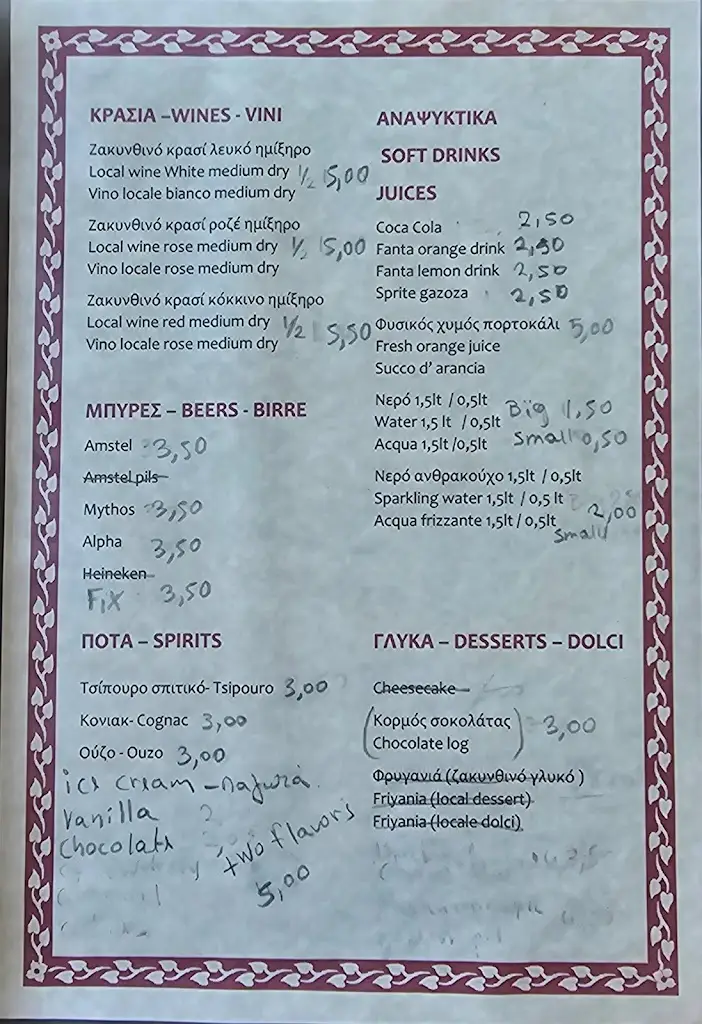 ΚΡΑΣΙΑ –WINES - VINI
Ζακυνθινό κρασί λευκό ημίξηρο
Local wine White medium dry 1/2 5,00
Vino locale bianco medium dry
Ζακυνθινό κρασί ροζέ ημίξηρο
Local wine rose medium dry 1/2 5,00
Vino locale rose medium dry
Ζακυνθινό κρασί κόκκινο ημίξηρο
Local wine red medium dry 1/2 5,50
Vino locale rose medium dry
ΜΠΥΡΕΣ – BEERS - BIRRE
Amstel 3,50
Amstel pils
Mythos 3,50
Alpha 3,50
Heineken
Fix 3,50
ΠΟΤΑ – SPIRITS
Τσίπουρο σπιτικό- Tsipouro 3,00
Κονιακ- Cognac 3,00
Ούζο - Ouzo 3,00
ice cream - παγωτά
Vanilla
Chocolate
two flavors
5,00
ΑΝΑΨΥΚΤΙΚΑ
SOFT DRINKS
JUICES
Coca Cola 2,50
Fanta orange drink 2,50
Fanta lemon drink 2,50
Sprite gazoza 2,50
Φυσικός χυμός πορτοκάλι 5,00
Fresh orange juice
Succo d' arancia
Νερό 1,5lt / 0,5lt
Water 1,5 lt / 0,5lt Big 1,50
Acqua 1,5lt /0,5lt Small 0,50
Νερό ανθρακούχο 1,5lt / 0,5lt
Sparkling water 1,5lt / 0,5 lt
Acqua frizzante 1,5lt / 0,5lt 2,00
Small
ΓΛΥΚΑ – DESSERTS – DOLCI
Cheesecake
(Κορμός σοκολάτας) 3,00
Chocolate log
Φρυγανιά (ζακυνθινό γλυκό )
Friyania (local dessert)
Friyania (locale dolci)